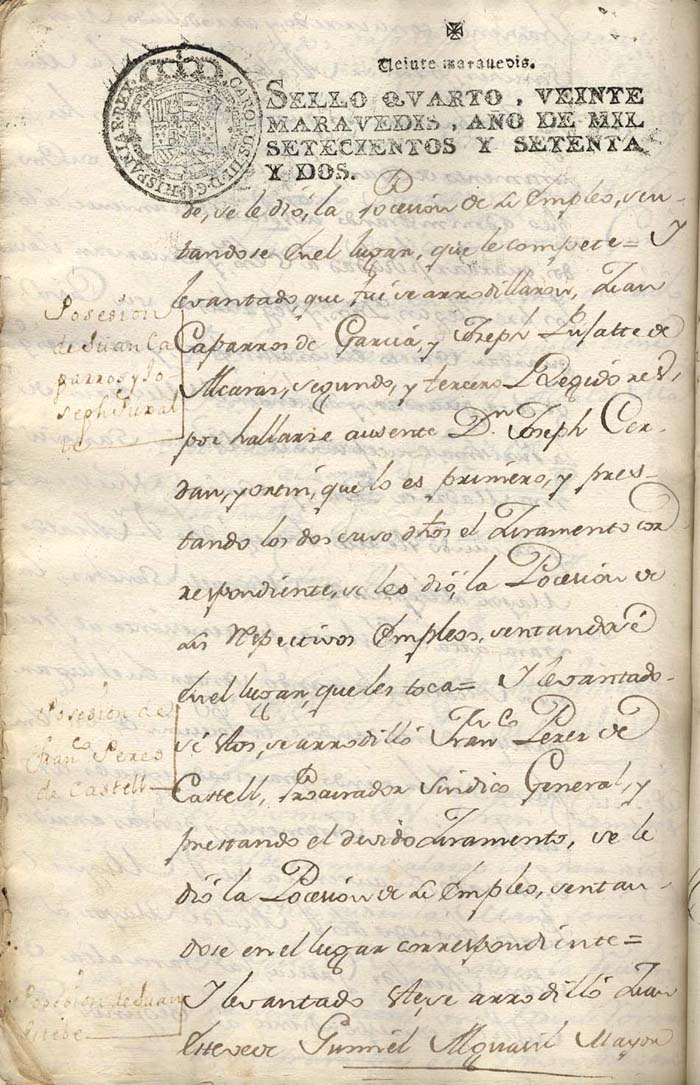 Veinte maravedis.
SELLO QVARTO, VEINTE
MARAVEDIS, AÑO DE MIL
SETECIENTOS Y SETENTA
Y DOS.
CAROLUS III D G HISPANIAR REX
de, se le dió, la Pocesión de el Empleo, sen-
tandose en el lugar, que le compete = Y
levantado que fué se arrodillaron, Juan
Caparros de Garcia, y Joseph de
Alcaras, segundo, y tercero Regidores
por hallarse ausente Dn. Joseph Cer-
dan, y ortin, que lo es primero, y pres-
tando los dos suso dhos el Juramento cor
respondiente, se les dió, la Pocesión de
Respectivos Empleos, sentandose
en el lugar, que les toca = Y levantado-
se estos, se arrodilló Franco Perez de
Castell, Procurador Sindico General, y
prestando el devido Juramento, se le
dió la Pocesión de el Empleo, sentan-
dose en el lugar correspondiente =
Y levantado este se arrodilló Juan
Esteve de Gumiel Alguacil Mayor
Posesion
de Juan Ca
parros y Jo
seph
Posesion de
Franco Peres
de Castell
Posesion de Juan
Estebe